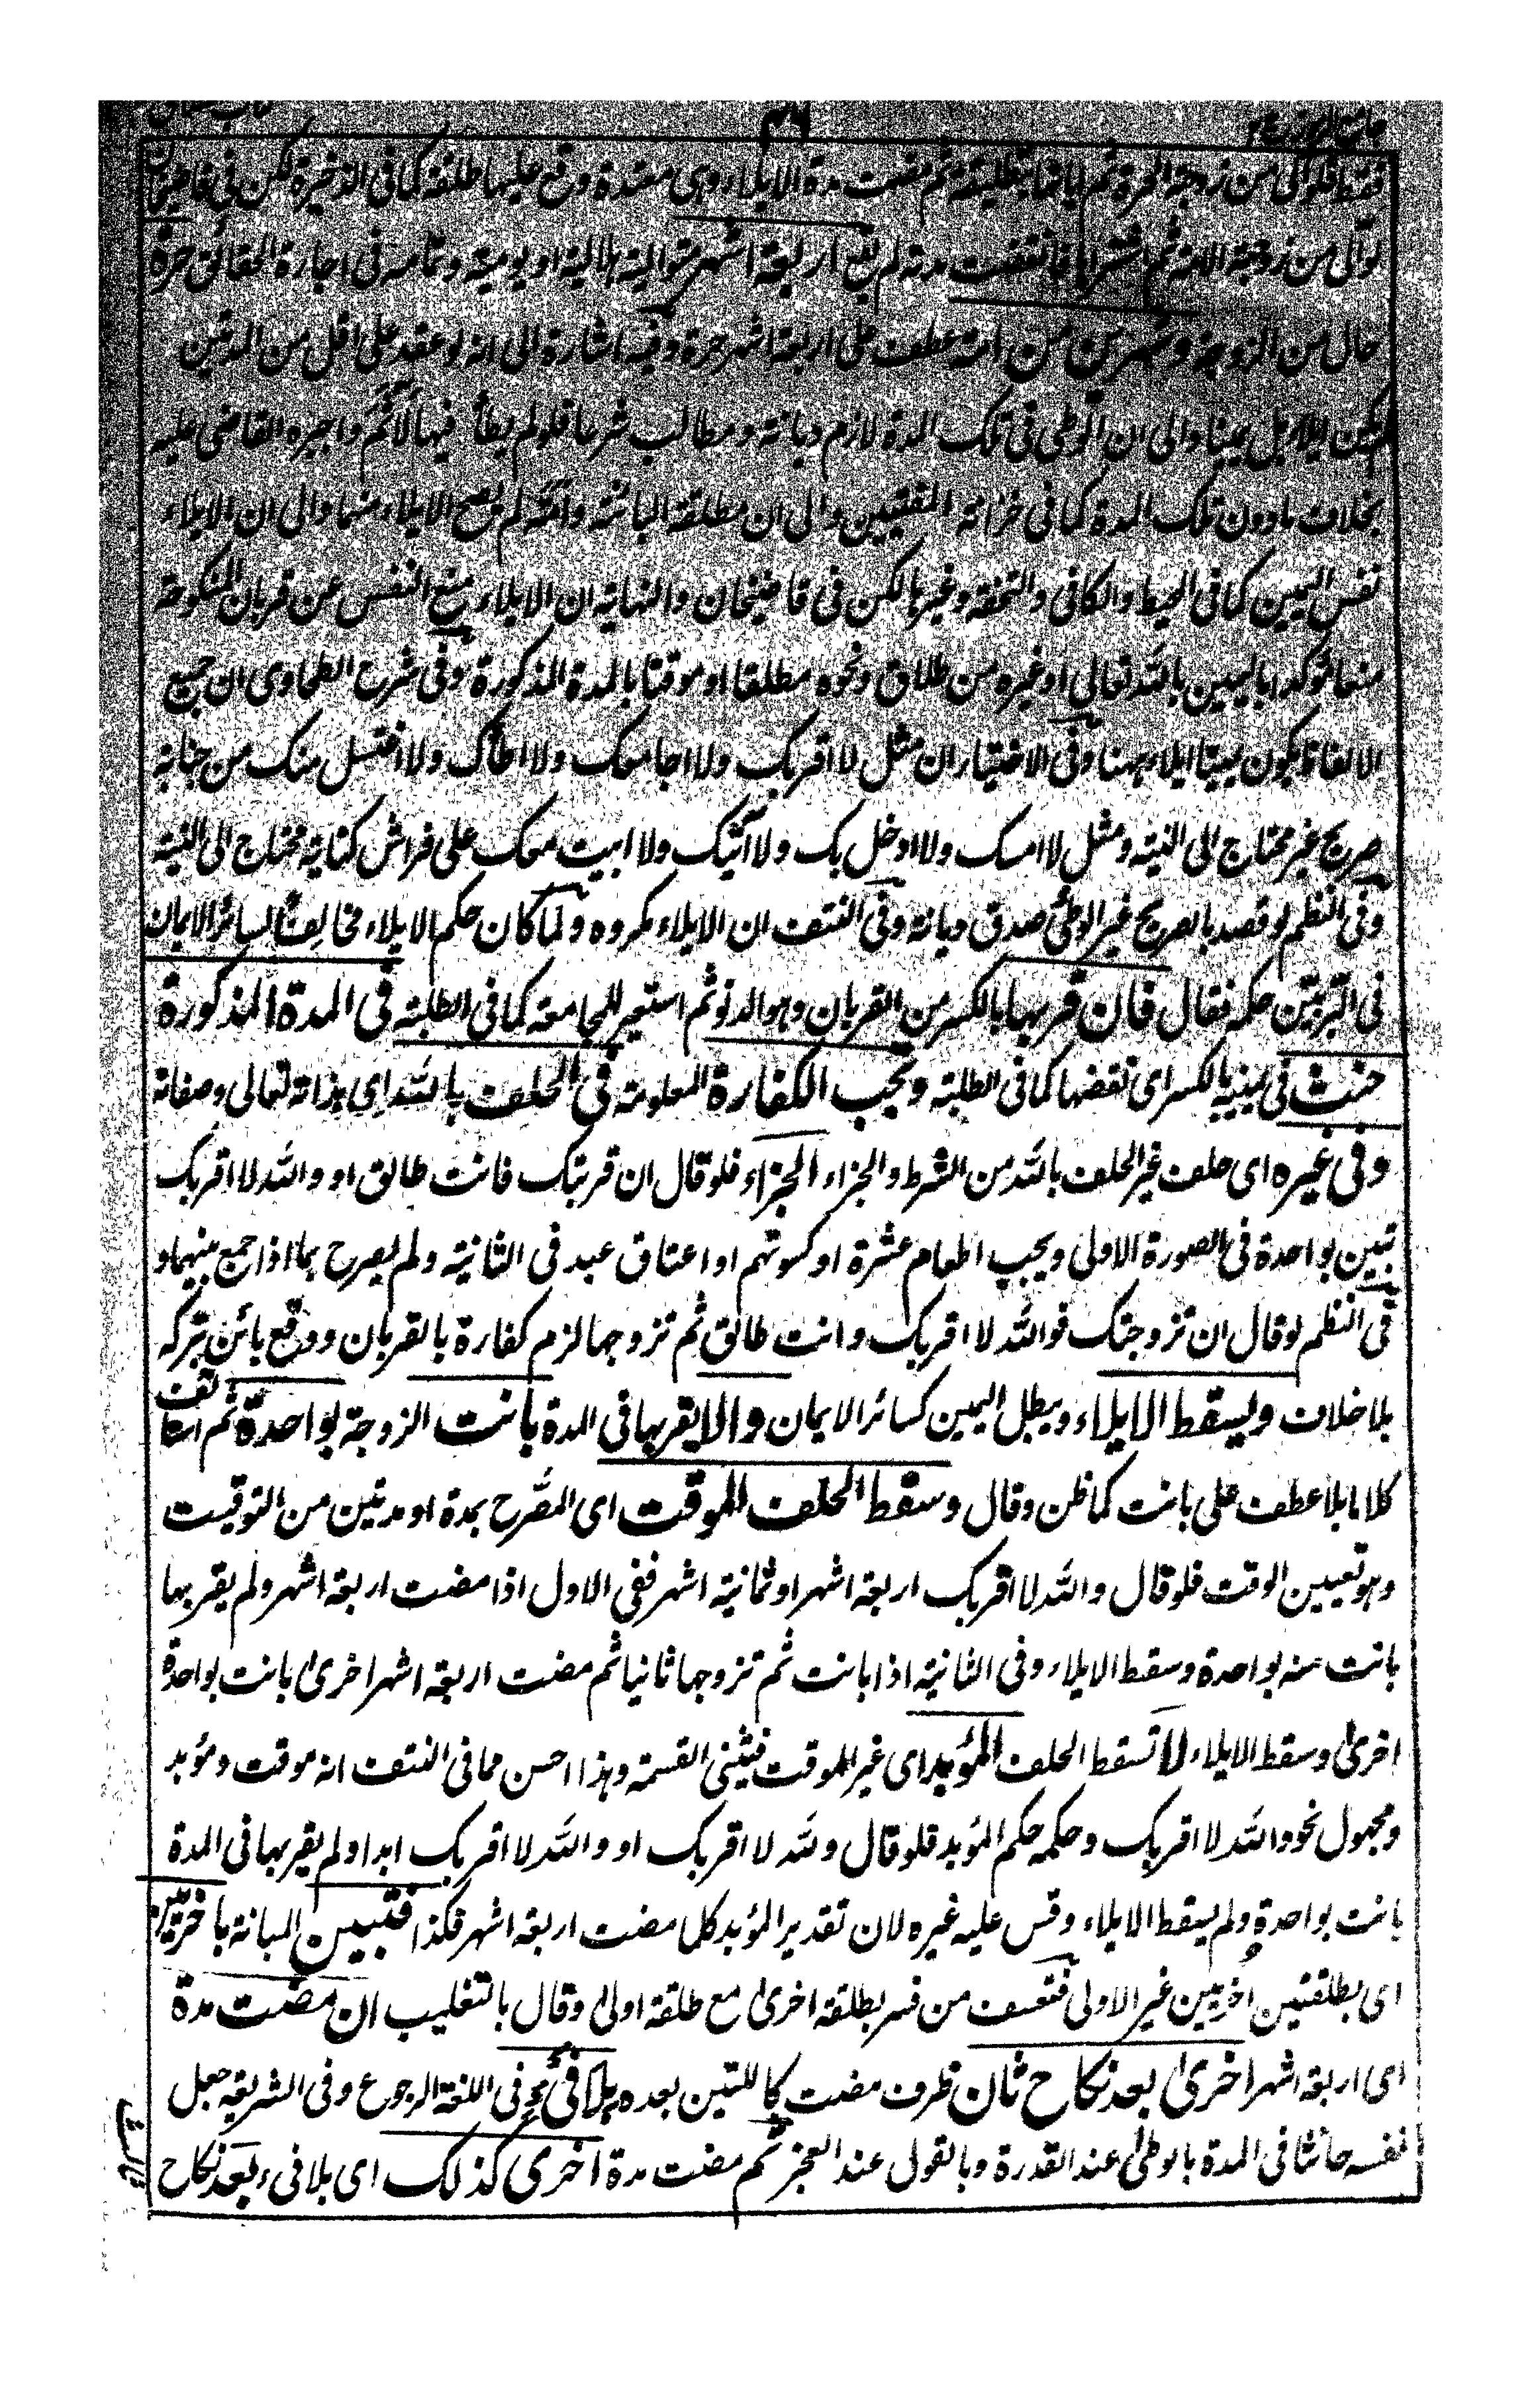 جامع الرموز
كتاب الطلاق
فقط فلو آلى من زوجته الحرة ثم ابانها بتطليقة ثم مضت مدة الايلاء وهى معتدة وقع عليها طلقة كما فى الذخيرة لكن فى قاضيخان
لو آلى من زوجته الامة ثم اشتراها فانقضت مدته لم يقع اربعة اشهر متوالية هلالية او يومية وتمامه فى اجارة الحقائق حرة
حال من الزوجة وشهرين من امة عطف على اربعة اشهر حرة وفيه اشارة الى انه لو عقد على اقل من المدتين
لم يكن ايلاء بل يمينا والى ان الوطى فى تلك المدة لازم ديانة ومطالب شرعا فلو لم يطأ فيها لاثم واجبره القاضى عليه
بخلاف ما دون تلك المدة كما فى خزانة المفتيين والى ان مطلقة البائنة وامته لم يصح الايلاء منهما والى ان الايلاء
نفس اليمين كما فى المحيط والكافى والتحفة وغيرها لكن فى قاضيخان والنهاية ان الايلاء منع النفس عن قربان المنكوحة
منعا مؤكدا باليمين بالله تعالى او غيره من طلاق ونحوه مطلقا او موقتا بالمدة المذكورة وفى شرح الطحاوى ان جميع
الالفاظ يكون يمينا ايلاء ههنا وفى الاختيار ان مثل لا اقربك ولا اجامعك ولا اطأك ولا اغتسل منك من جنابة
صريح غير محتاج الى النية ومثل لا امسك ولا ادخل بك ولا آتيك ولا ابيت معك على فراش كناية محتاج الى النية
وفى النظم لو قصد بالصريح غير الوطى صدق ديانة وفى النتف ان الايلاء مكروه ولما كان حكم الايلاء مخالفا لسائر الايمان
فى البر بين حكمه فقال فان قربها بالكسر من القربان وهو الدنو ثم استعير للمجامعة كما فى الطلبة فى المدة المذكورة
حنث فى يمينه بالكسر اى نقضها كما فى الطلبة ويجب الكفارة المعلومة فى الحلف بالله اى بذاته تعالى وصفاته
وفى غيره اى حلف غير الحلف بالله من الشرط والجزاء الجزاء فلو قال ان قربتك فانت طالق او والله لا اقربك
تبين بواحدة فى الصورة الاولى ويجب اطعام عشرة او كسوتهم او اعتاق عبد فى الثانية ولم يصرح بما اذا جمع بينهما و
فى النظم لو قال ان تزوجتك فوالله لا اقربك وانت طالق ثم تزوجها لزم كفارة بالقربان ووقع بائن بتركه
بلا خلاف ويسقط الايلاء ويبطل اليمين كسائر الايمان والا يقربها فى المدة بانت الزوجة بواحدة ثم استانف
كلاما بلا عطف على بانت كما ظن وقال وسقط الحلف الموقت اى المصرح بمدة او مدتين من التوقيت
وهو تعيين الوقت فلو قال والله لا اقربك اربعة اشهر او ثمانية اشهر ففى الاول اذا مضت اربعة اشهر ولم يقربها
بانت منه بواحدة وسقط الايلاء وفى الثانية اذا بانت ثم تزوجها ثانيا ثم مضت اربعة اشهر اخرى بانت بواحدة
اخرى وسقط الايلاء لا تسقط الحلف المؤبد اى غير الموقت فيثنى القسمة وهذا احسن مما فى النتف انه موقت ومؤبد
ومجهول نحو والله لا اقربك وحكمه حكم المؤبد فلو قال والله لا اقربك او والله لا اقربك ابدا ولم يقربها فى المدة
بانت بواحدة ولم يسقط الايلاء وقس عليه غيره لان تقدير المؤبد كلما مضت اربعة اشهر فكذا فتبين المبانة باخريين
اى بطلقتين اخريين غير الاولى فتعسف من فسر بطلقة اخرى مع طلقة اولى وقال بالتغليب ان مضت مدة
اى اربعة اشهر اخرى بعد نكاح ثان ظرف مضت كاللتين بعده بلا فئ هو فى اللغة الرجوع وفى الشريعة جعل
نفسه حانثا فى المدة بالوطى عند القدرة وبالقول عند العجز ثم مضت مدة اخرى كذلك اى بلا فىء بعد نكاح
ثالث